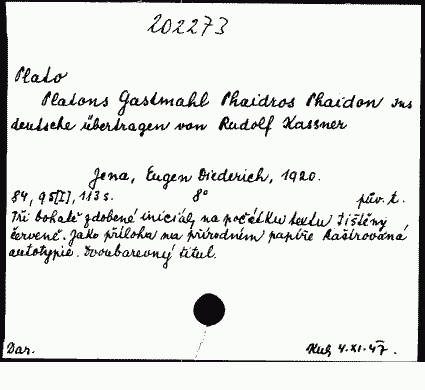 202273
Plato
Platons Gastmahl Phaidros Phaidon ins
deutsche übertragen von Rudolf Kassner
Jena, Eugen Diederich, 1920.
84, 95[I], 113 s. 8° pův. t.
Tři bohatě zdobené iniciály na počátku textu tištěny
červeně. Jako příloha na přírodním papíře Rastrovaná
autotypie. Dvoubarevný titul.
Dar. 4.XI.47.